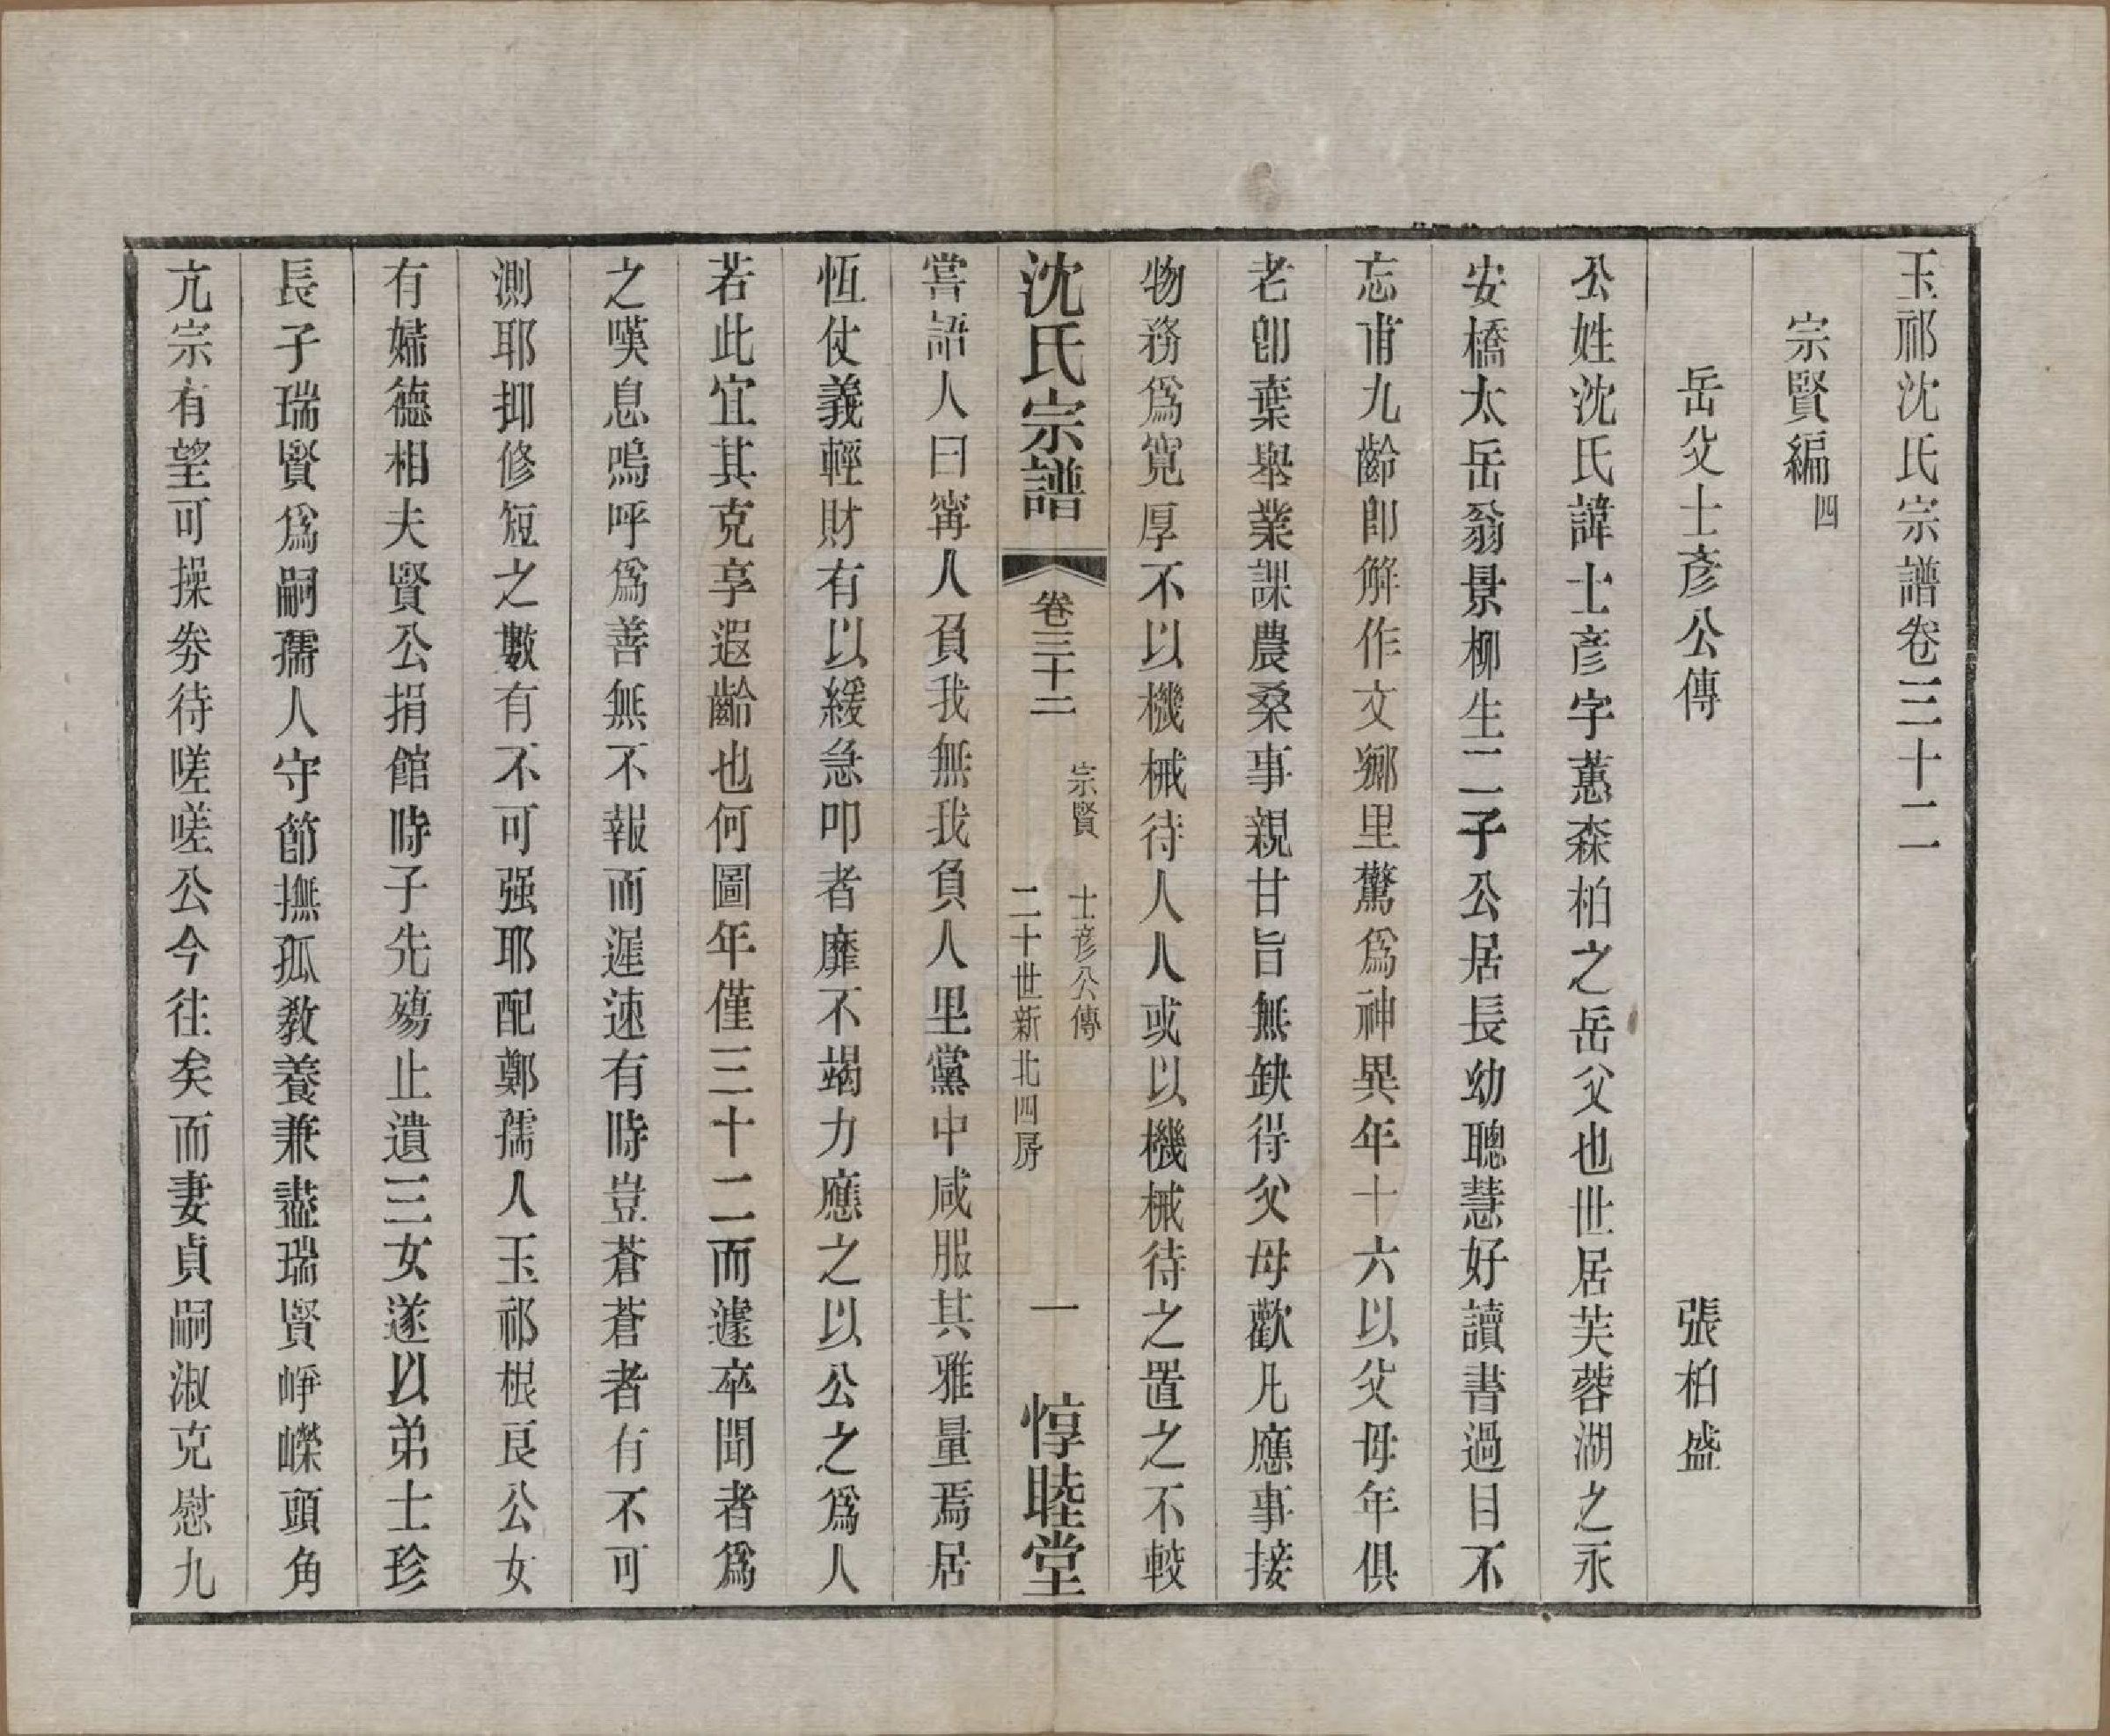 玉祁沈氏宗譜卷三十二
宗賢編四
岳父士彥公傳　張柏盛
公姓沈氏諱士彥字蕙森柏之岳父也世居芙蓉湖之永
安橋太岳翁景柳生二子公居長幼聰慧好讀書過目不
忘甫九齡卽解作文鄉里驚爲神異年十六以父母年俱
老卽棄舉業課農桑事親甘旨無缺得父母歡凡應事接
物務爲寬厚不以機械待人人或以機械待之置之不較
沈氏宗譜　卷三十二　宗賢　士彥公傳　二十世新北四房　一　惇睦堂
嘗語人曰甯人負我無我負人里黨中咸服其雅量焉居
恆仗義輕財有以緩急叩者靡不竭力應之以公之爲人
若此宜其克享遐齡也何圖年僅三十二而遽卒聞者爲
之嘆息嗚呼爲善無不報而遲速有時豈蒼蒼者有不可
測耶抑修短之數有不可强耶配鄭孺人玉祁根良公女
有婦德相夫賢公捐館時子先殤止遺三女遂以弟士珍
長子瑞賢爲嗣孺人守節撫孤敎養兼盡瑞賢崢嶸頭角
亢宗有望可操券待嗟嗟公今往矣而妻貞嗣淑克慰九